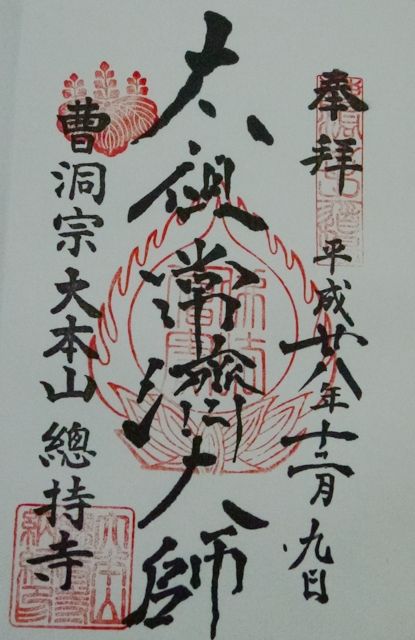 奉拝
平成廿八年十二月九日
太祖常濟大師
曹洞宗大本山總持寺